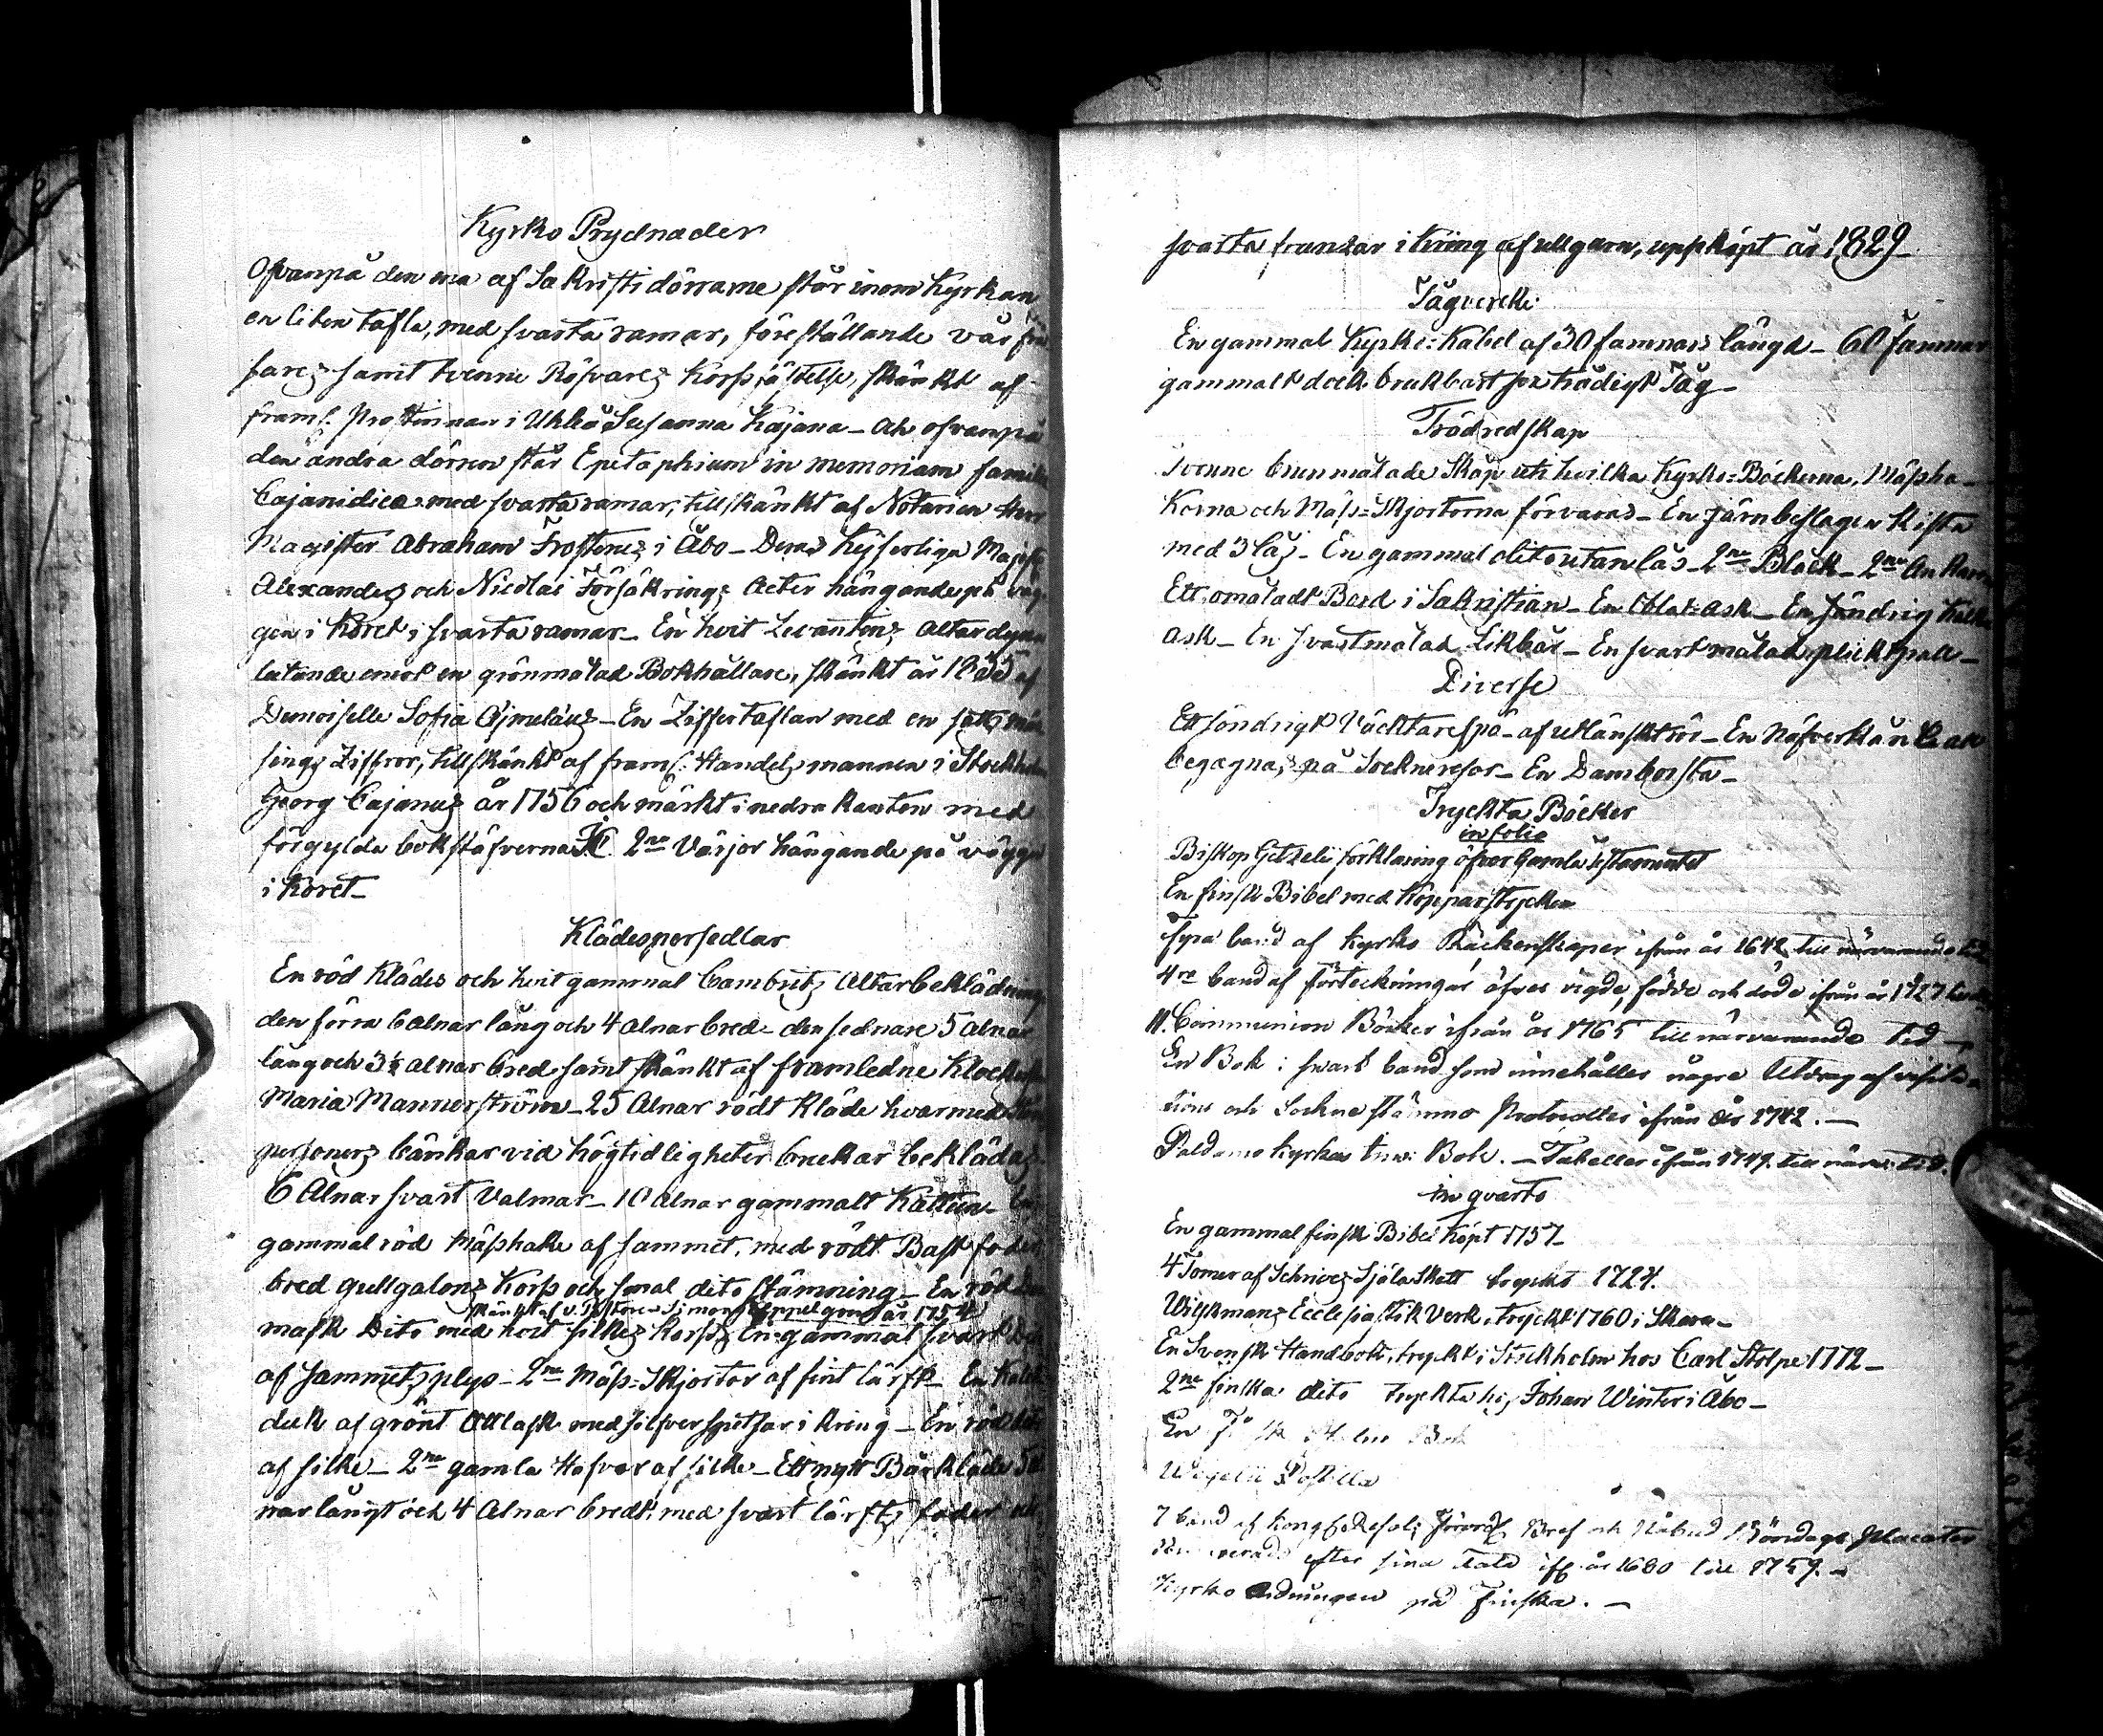 Kyrko Prydnader
Ofvanpå den ena af Sakristi dörrarne står inom Kyrkan
en liten tafla, med svarta ramar, föreställande vår
samt tvenne Röfvares Korssfästelse, skänkt af
framl. Prostinnan i Uhleå Susanna Kajana _ Och ofvanpå
den andra dörren står Epitaphium in memoriam famil
Cajanidica med svarta ramar, tillskänkt af Notarien Herr
Magister Abraham Frosterus i Åbo _ Deras Kejserliga Majest
Alexanders och Nicolai Försäkrings Acter hängande på väg
gen i Koret i svarta ramar _ En hvit Levantins Altardyna
en grönmålad Bokhållare, skänkt år af
Demoiselle Sofia _ En Ziffertaflan med en satts
sings Ziffror, tillskänkt af framl. Handelsmannen i Stockholm
Georg Cajanus år 1756 och märkt i nedra kanten med
förgylda bokstäfverna 2ne Värjor hängande på vägga
i Koret _
Klädespersedlar
En röd Klädes och hvit gammal Cambrits Altarbeklädning
den förra 6 alnar lång och 4 alnar bred _ den sednare 5 alnar
lång och 3½ alnar bred samt skänkt af framledne
Maria Mannerström _ 25 Alnar rödt Kläde hvarmed
persones bänkar vid högtidligheter bruckar beklädas.
6 Alnar svart Valmar _ 10 Alnar gammalt Kattun _ En
gammal röd Mässhake af sammet, med rödt Bast foder,
bred gullgalons Korss och smal dito stämning _ En röd Da
skänkt af år 1754
mask Dito med hvit silkes Korss, En gammal svart Dito
af Sammets plys _ 2ne Mäss-Skjortor af fint lärft _ En Kalk
duk af grönt Attlask med silfverspetsar i kring _ En röd dito
af silke _ 2ne gamla Hofvar af silke _ Ett nytt Bårkläde 5 al
nar långt och 4 Alnar bredt, med svart lärfts foder

svarta franzar i kring af ullgarn, uppköpt år 1829 _
Tågverke
En gammal Kyrko-Kabel af 30 famnars längd _ 60 famnar
gammalt dock brukbart sextrådigt Tåg _
Trädredskap
Tvenne brunmålade Skåp uti hvilka Kyrko-Böckerna, Mässha_
korna och Mäss-Skjortorna förvaras _ En järnbeslagen Kista
med 3 lås _ En gammal dito utan lås _ 2ne Bläck _ 2ne Ankare
Ett omåladt Bord i Sakristian _ En Oblat-ask _ En söndrig Kalk
ask _ En svartmålad Likbår _ En svart målad plicktpall _
Diverse
Ett söndrigt Väcktarespö _ af utländskt rör _ En Näfverkån
begagnas på Socknresor _ En Damborsta _
Tryckta Böcker
in folio
Biskop Getzelii förklaring öfver Gamla Testamentet
En finsk Bibel med Kopparstycken
Fyra band af Kyrko Räckenskaper ifrån år 1642 till närvarande tid
4ra band af förteckningar öfver vigde, födde och döde ifrån år 1727
11. Communion Böcker ifrån år 1765 till närvarande tid _
En Bok i svart band som innehåller några Utdrag af visita
tions och Sockne stämmo Protocoller ifrån år 1742. _
Paldamo Kyrkas Inv: Bok. _ Tabeller ifrån 1749. till närv: tid.
in qvarto
En gammal finsk Bibel köpt 1757 _
4 Tomer af Schrivers Själa Skatt tryckt 1727.
Wilskmans Ecclesiastik Verk, tryckt 1760 i Skara _
En Svensk Handbok, tryckt i Stockholm hos Carl Stolpe 1772 _
2ne finska dito tryckta hos Johan Winter i Åbo _
En Bok
Wegelii Postilla
7 band af Kongl. Resol: Förord: Bref och Påbud Böndags Placater
efter sina ifr. år 1680 till 1759. _
Kyrko Ordningen på Finska. _